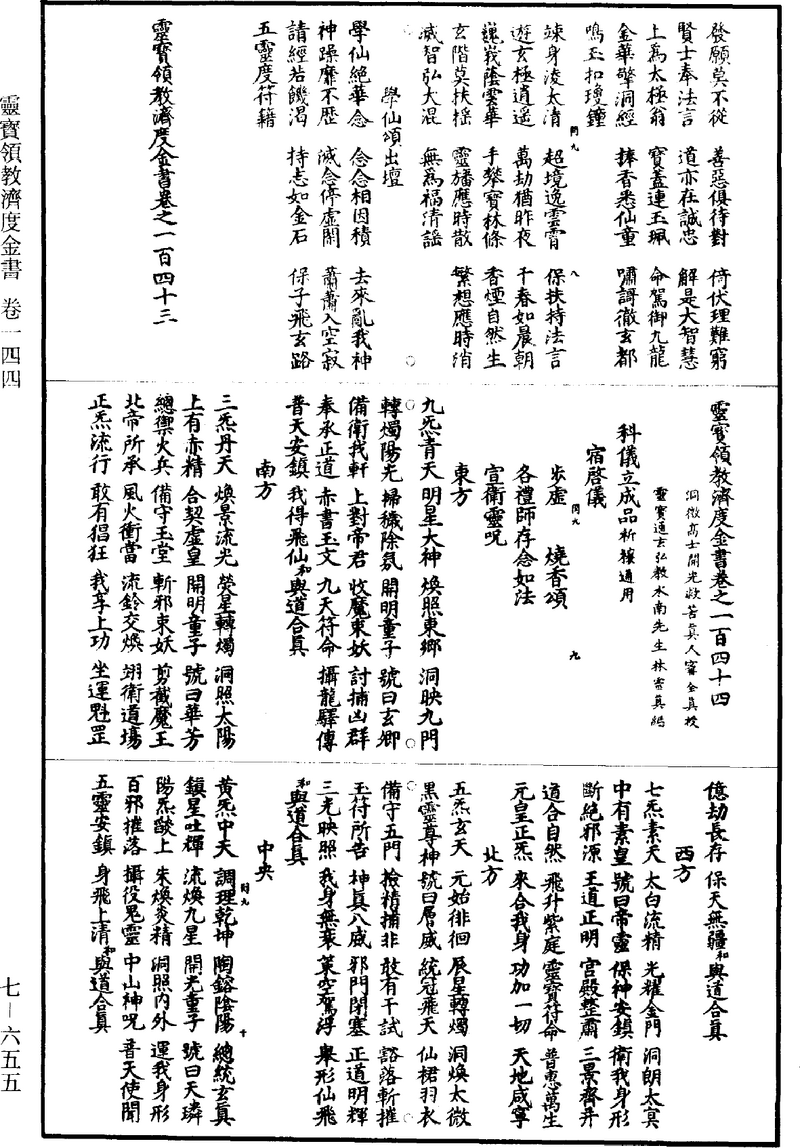 發願莫不從　善惡俱待對　倚伏理難窮
賢士奉法言　道亦在誠忠　解是大智慧
上為太極翁　寶蓋連玉珮　命駕御九龍
金華擎洞經　捧香悉仙童　嘯謌徹玄都
鳴玉扣瓊鐘
竦身淩太清　超境逸雲霄　保扶持法言
遊玄極逍遥　萬劫猶昨夜　千春如晨朝
巍峩蔭雲華　手攀寶林條　香煙自然生
玄階莫扶樑　靈旛應時散　繁想應時消
滅智弘大混　無為福清謡
學仙頌出壇
學仙絕華念　念念相因積　去來亂我神
神躁靡不歷　滅念停虛閑　蕭蕭入空寂
請經若飢渴　持志如金石　保子飛玄路
五靈度符籍
靈寶領教濟度金書卷之一百四十三
靈寶領教濟度金書卷之一百四十四
洞微高士開光救苦真人甯全真授
靈寶通玄弘教水南先生林靈真編
科儀立成品祈禳通用
宿啓儀
步虛　燒香頌
各禮師存念如法
宣衛靈呪
東方
九炁青天　明星大神　煥照東鄉　洞映九門
轉燭陽光　掃穢除氛　開明童子　號曰玄卿
備衛我軒　上對帝君　收魔束妖　討捕凶群
奉承正道　赤書玉文　九天符命　攝龍驛傳
普天安鎮　我得飛仙和與道合真
南方
三炁丹天　煥景流光　熒星轉燭　洞照太陽
上有赤精　合契虛皇　開明童子　號曰華芳
總禦火兵　備守玉堂　斬邪束妖　剪截魔王
北帝所承　風火衝當　流鈴交煥　翊衛道場
正炁流行　敢有倡狂　我享上功　坐運魁罡
億劫長存　保天無疆和與道合真
西方
七炁素天　太白流精　光耀金門　洞朗太冥
中有素皇　號曰帝靈　保神安鎮　衛我身形
斷絕邪源　王道正明　宮殿整肅　三景齊并
道合自然　飛升紫庭　靈寶符命　普惠萬生
元皇正炁　來合我身　功加一切　天地咸寧
北方
五炁玄天　元始徘徊　辰星轉燭　洞煥太微
黑靈尊神　號曰層威　統冠飛天　仙裙羽衣
備守五門　檢精捕非　敢有干試　豁落斬摧
玉符所告　神真八威　邪門閉塞　正道明輝
三光映照　我身無衰　策空駕浮　舉形仙飛
和與道合真
中央
黃炁中天　調理乾坤　陶鎔陰陽　總統玄真
鎮星吐輝　流煥九星　開光童子　號曰天璘
陽炁歘上　朱煥炎精　洞照內外　運我身形
百邪摧落　攝役鬼靈　中山神呪　普天使聞
五靈安鎮　身飛上清和與道合真
靈寶領教濟度金書　卷一四四
七－六五五